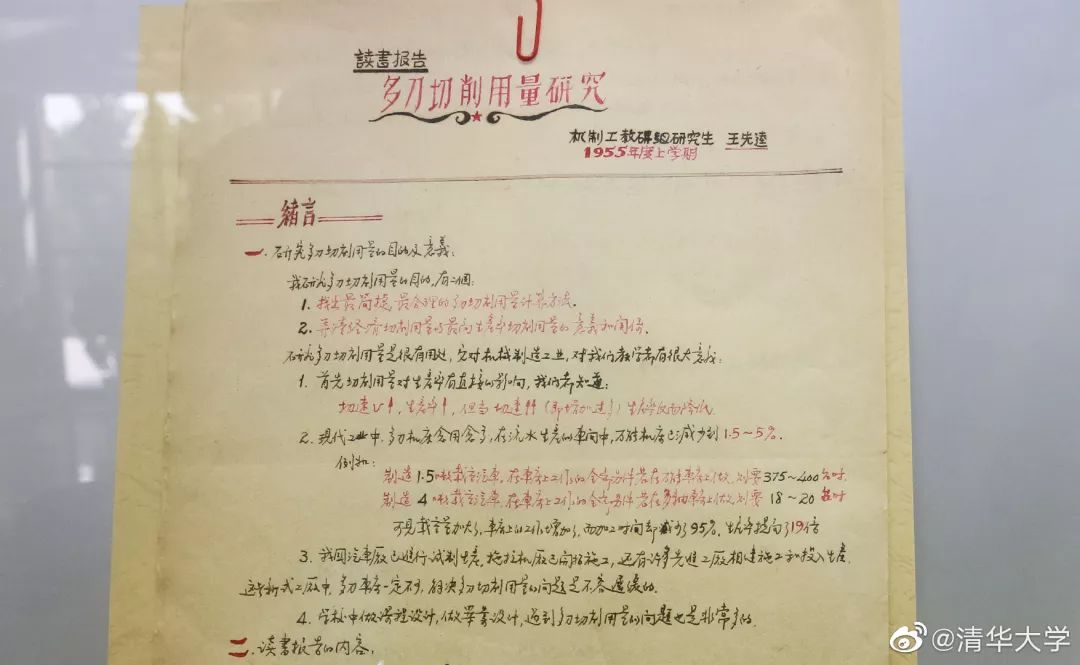 讀書报告
多刀切削用量研究
机制工教研組研究生 王先逵
1955年度上学期
緒言
一. 研究多刀切削用量的目的及意義:
我研究多刀切削用量的目的,有二個:
1. 找出最简捷,最合理的多刀切削用量计算方法.
2. 弄清经济切削用量与最高生產率切削用量的意義和関係.
研究多刀切削用量是很有用处,它对机械制造工业,对我们教学都有很大意義:
1. 首先切削用量对生產率有直接的影响,我们都知道:
切速V↑,生產率↑,但当切速↑↑(即增加过多)生產率反而降低.
2. 現代工业中,多刀机床会用会多,在流水生產的車间中,万能机床已减少到1.5~5%.
例如:
制造1.5吨載重汽車,在車床上工作的全部另件若在万能車床上做,则要375~400台时
制造4吨載重汽車,在車床上工作的全部另件若在多軸車床上做,则要18~20台时
可見載重量加大了,車床上的工作增加了,而加工时间却减少了95%,生產率提高了19倍
3. 我国汽車厰已進行試制生產,拖拉机厰已開始施工,还有许多先進工厰相継施工和投入生產.
这些新式工厰中,多刀車床一定不少,解决多刀切削用量的问题是不容遲缓的.
4. 学校中做课程设计,做畢業设计,遇到多刀切削用量的问题也是非常多的.
二. 读書报告的内容:
@清华大学